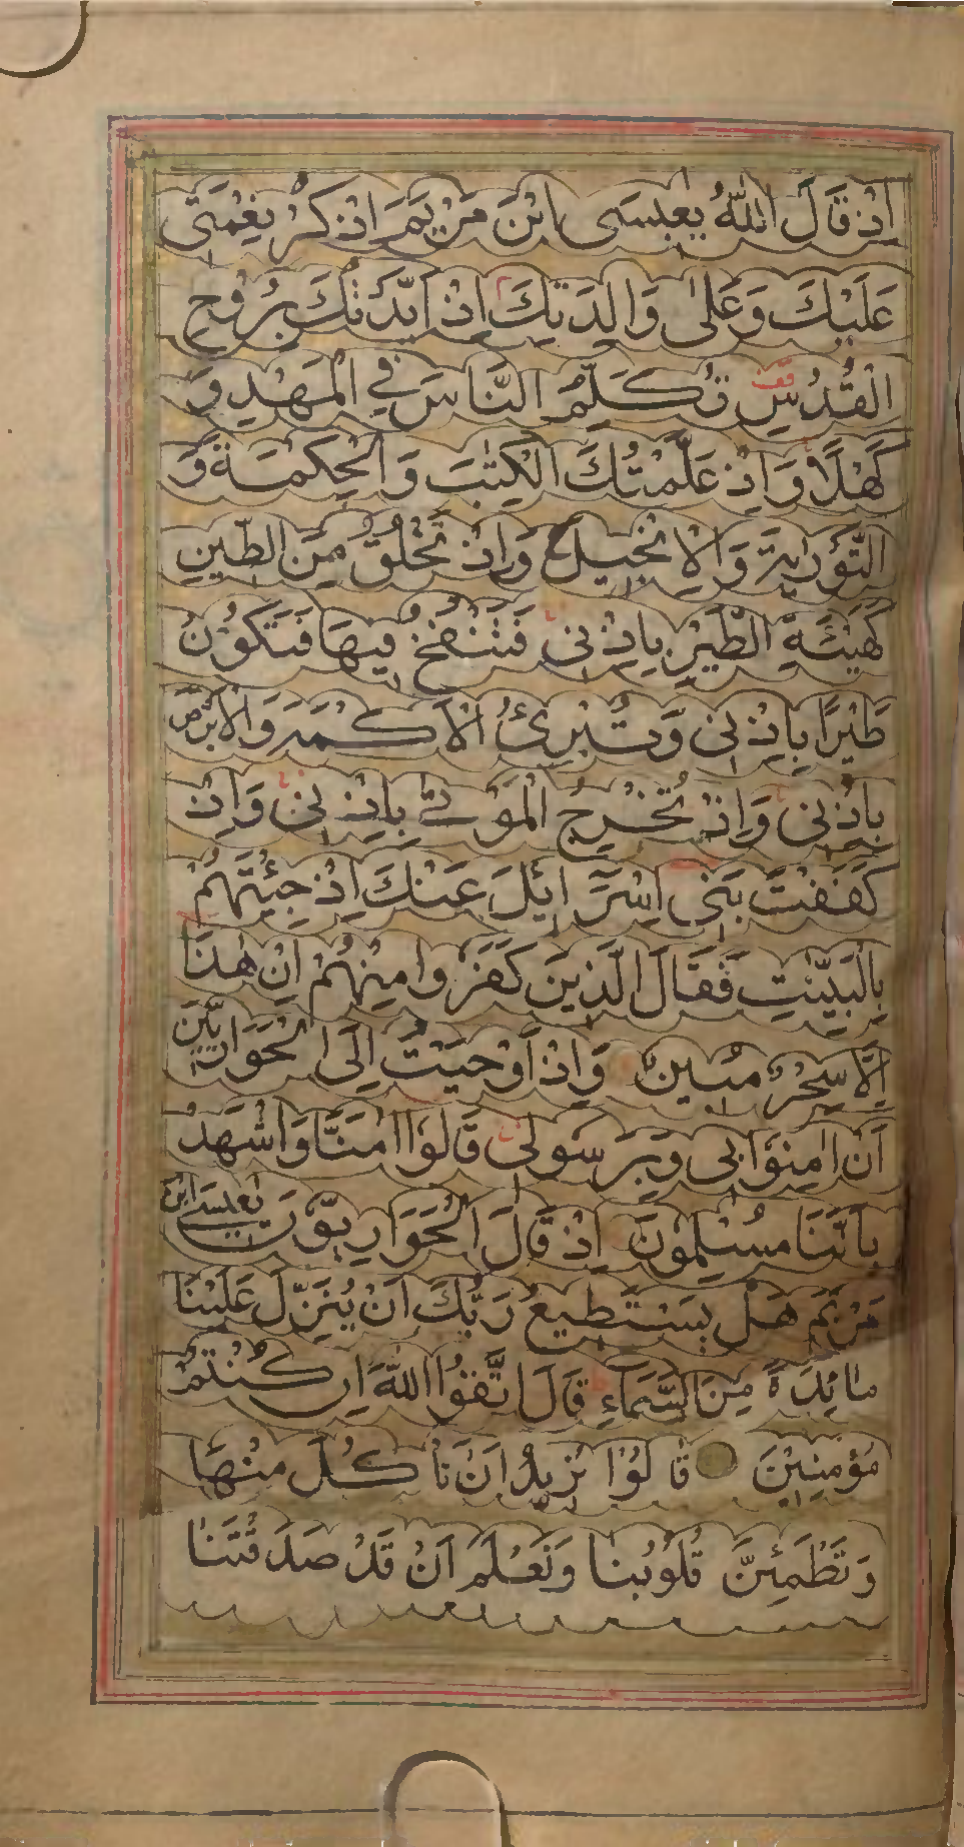 اِذْ قَالَ اللّٰهُ يٰعِيسَى ابْنَ مَرْيَمَ اذْكُرْ نِعْمَتِي
عَلَيْكَ وَعَلٰى وَالِدَتِكَ اِذْ اَيَّدْتُكَ بِرُوحِ
الْقُدُسِ تُكَلِّمُ النَّاسَ فِي الْمَهْدِ وَ
كَهْلًا وَاِذْ عَلَّمْتُكَ الْكِتٰبَ وَالْحِكْمَةَ وَ
التَّوْرٰيةَ وَالْاِنْجِيلَ وَاِذْ تَخْلُقُ مِنَ الطِّينِ
كَهَيْئَةِ الطَّيْرِ بِاِذْنِي فَتَنْفُخُ فِيهَا فَتَكُونُ
طَيْرًا بِاِذْنِي وَتُبْرِئُ الْاَكْمَهَ وَالْاَبْرَصَ
بِاِذْنِي وَاِذْ تُخْرِجُ الْمَوْتٰى بِاِذْنِي وَاِذْ
كَفَفْتُ بَنِي اِسْرَآئِلَ عَنْكَ اِذْ جِئْتَهُمْ
بِالْبَيِّنٰتِ فَقَالَ الَّذِينَ كَفَرُوا مِنْهُمْ اِنْ هٰذَا
اِلَّا سِحْرٌ مُبِينٌ وَاِذْ اَوْحَيْتُ اِلَى الْحَوَارِيِّينَ
اَنْ اٰمِنُوا بِي وَبِرَسُولِي قَالُوا اٰمَنَّا وَاشْهَدْ
بِاَنَّنَا مُسْلِمُونَ اِذْ قَالَ الْحَوَارِيُّونَ يٰعِيسَى ابْنَ
مَرْيَمَ هَلْ يَسْتَطِيعُ رَبُّكَ اَنْ يُنَزِّلَ عَلَيْنَا
مَائِدَةً مِنَ السَّمَآءِ قَالَ اتَّقُوا اللّٰهَ اِنْ كُنْتُمْ
مُؤْمِنِينَ قَالُوا نُرِيدُ اَنْ نَاْكُلَ مِنْهَا
وَتَطْمَئِنَّ قُلُوبُنَا وَنَعْلَمَ اَنْ قَدْ صَدَقْتَنَا